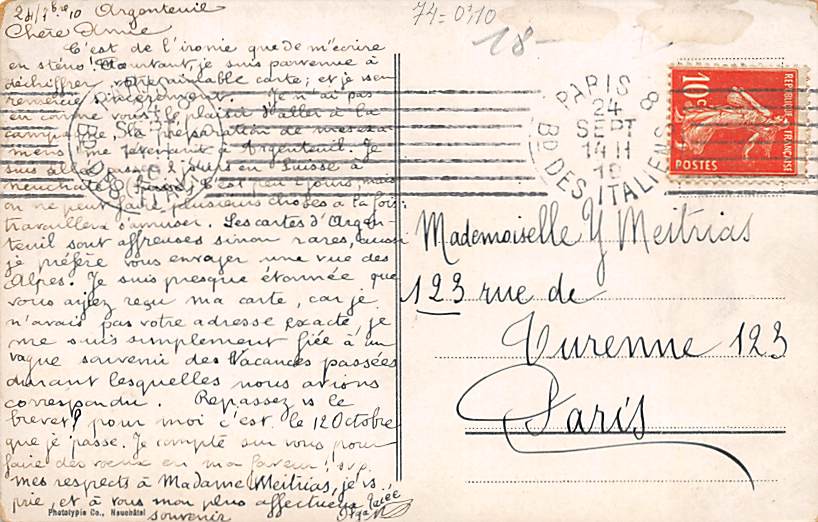 24/7bre 10 Argenteuil
Chère Amie
C'est de l'ironie que de m'écrire
en sténo! Pourtant, je suis parvenue à
déchiffrer votre aimable carte; et je vs en
remercie sincèrement. Je n'ai pas
eu comme vous le plaisir d'aller à la
campagne. La préparation de mes exa
mens me retenant à Argenteuil. Je
suis allée passer 2 jours en Suisse à
Neuchâtel. C'est peu 2 jours, mais
on ne peut faire plusieurs choses à la fois:
travailler & s'amuser. Les cartes d'Argen-
teuil sont affreuses sinon rares, aussi
je préfère vous envoyer une vue des
Alpes. Je suis presque étonnée que
vous ayez reçu ma carte, car je
n'avais pas votre adresse exacte, je
me suis simplement fiée à un
vague souvenir des Vacances passées
durant lesquelles nous avions
correspondu. Repassez vs le
brevet? pour moi c'est le 12 Octobre
que je passe. Je compte sur vous pour
faire des voeux en ma faveur! svp.
mes respects à Madame Meitrias, je vs
prie, et à vous mon plus affectueux
souvenir
Photolypie Co., Neuchâtel
74=0310
18-
PARIS 8
24
SEPT
14 H
10
Bd DES ITALIENS
10c
REPUBLIQUE FRANÇAISE
POSTES
Mademoiselle Y Meitrias
123 rue de
Turenne 123
Paris